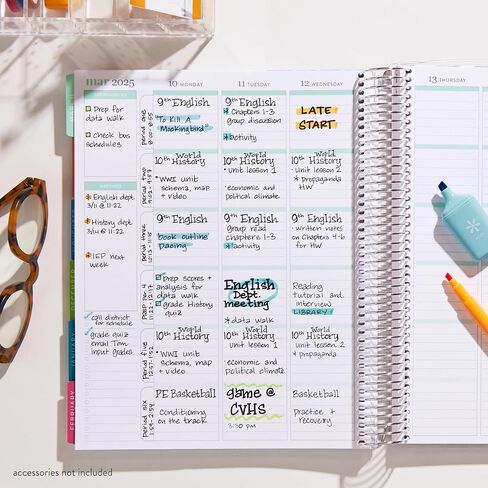 mar 2025
10 MONDAY
11 TUESDAY
12 WEDNESDAY
13 THURSDAY
Prep for
data walk
check bus
schedules
English dept.
3/11 @ 11:22
History dept.
3/14 @ 11:22
IEP next
week
call district
for schedule
grade quiz
email Tom
input grades
DECEMBER
JANUARY
FEBRUARY
period one
8:00 - 8:55
9th English
"To Kill A
Mockingbird"
9th English
* Chapters 1-3
group discussion
* activity
LATE
START
period two
10th World
History
* WWI unit
schema, map
+ video
10th World
History
· unit lesson 1
· economic and
political climate
10th World
History
· unit lesson 2
* propaganda
HW
period three
9th English
book outline
pacing
9th English
group read
chapters 1-3
* activity
9th English
· written notes
on Chapters 4-6
for HW
period 4
11:22 - 12:17
prep scores +
analysis for
data walk
grade History
quiz
English
Dept.
meeting
* data walk
Reading
tutorial and
interview
LIBRARY
period five
12:57 - 1:52
10th World
History
* WWI unit
schema, map
+ video
10th World
History
unit lesson 1
· economic and
political climate
10th World
History
· unit lesson 2
* propaganda
period six
PE Basketball
Conditioning
on the track
game @
CVHS
3:30 pm
Basketball
practice +
recovery
accessories not included